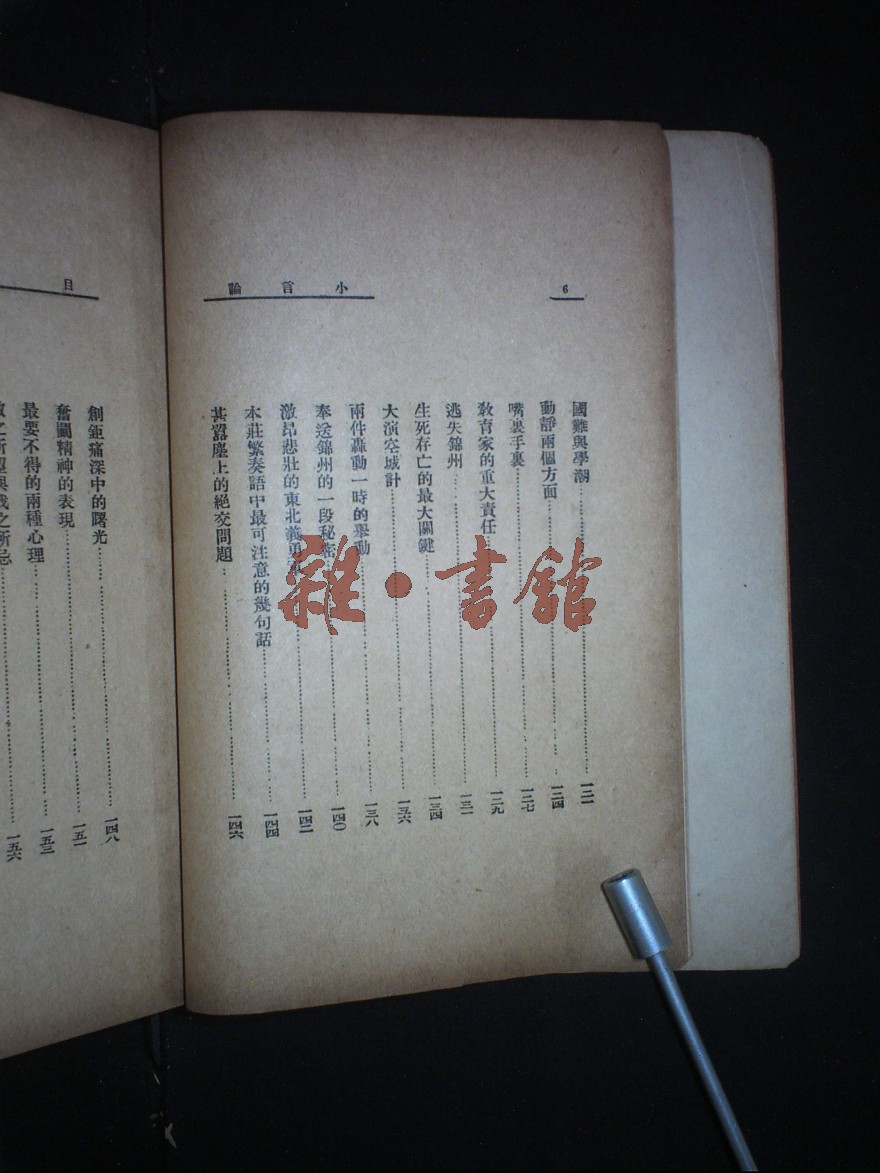 小言論
6
國難與學潮……一二一
動靜兩個方面……一二四
嘴裏手裏……一二七
教育家的重大責任……一二九
逃失錦州……一三一
生死存亡的最大關鍵……一三四
大演空城計……一三六
兩件轟動一時的舉動……一三八
奉送錦州的一段秘密……一四〇
激昂悲壯的東北義勇……一四二
本莊繁奏語中最可注意的幾句話……一四四
甚囂塵上的絕交問題……一四六
目
創鉅痛深中的曙光……一四八
奮鬭精神的表現……一五一
最要不得的兩種心理……一五三
之所望與我之所忌……一五六
雜·書館